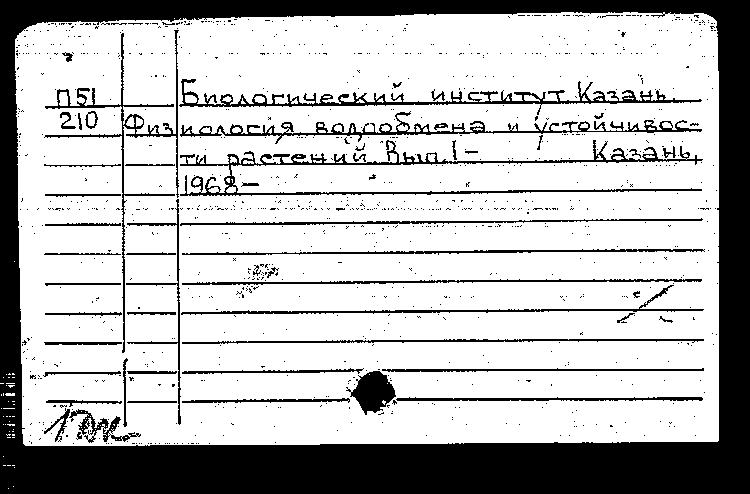 П51 Биологический институт Казань.
210 Физиология водообмена и устойчивос-
ти растений Вып. 1- Казань,
1968-